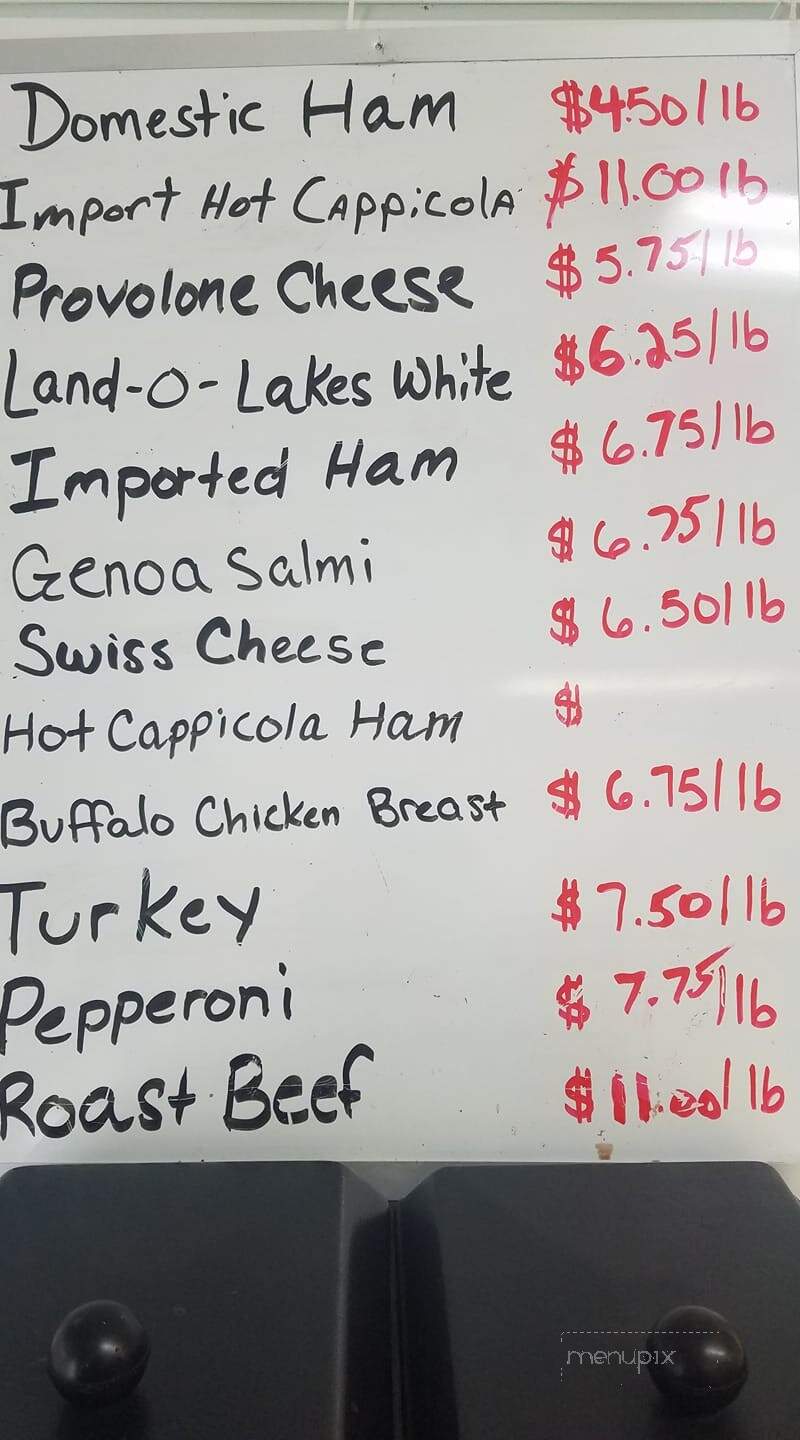 Domestic Ham $4.50/lb
Import Hot Cappicola $11.00 lb
Provolone Cheese $5.75/lb
Land-O-Lakes White $6.25/lb
Imported Ham $6.75/lb
Genoa Salmi $6.75/lb
Swiss Cheese $6.50/lb
Hot Cappicola Ham $
Buffalo Chicken Breast $6.75/lb
Turkey $7.50/lb
Pepperoni $7.75/lb
Roast Beef $11.00/lb
menupix